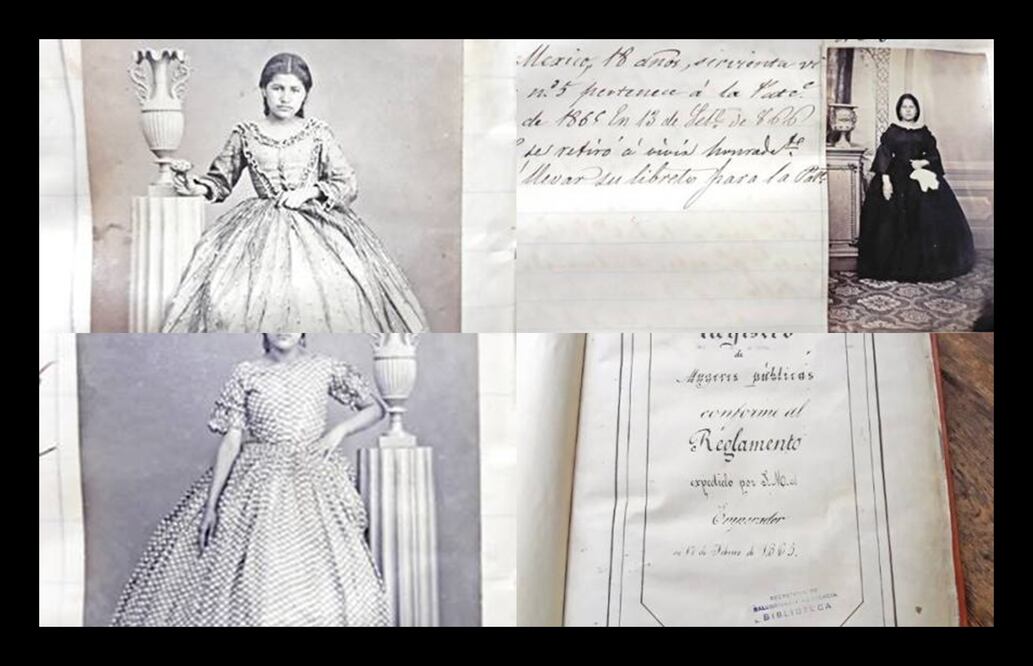 Mexico, 18 años, sirvienta vi
n.º 5 pertenece á la Pate.ᵗᵉ
de 1866 En 13 de Feb.º de 866
se retiró á vivir honradᵗᵉ.
llevar su libreto para la Patᵗᵉ
Registro
de
Mugeres públicas
conforme al
Reglamento
expedido por S. M. el
Emperador
en 17 de Febrero de 1865.
SECRETARIA DE
SALUBRIDAD Y ASISTENCIA
BIBLIOTECA